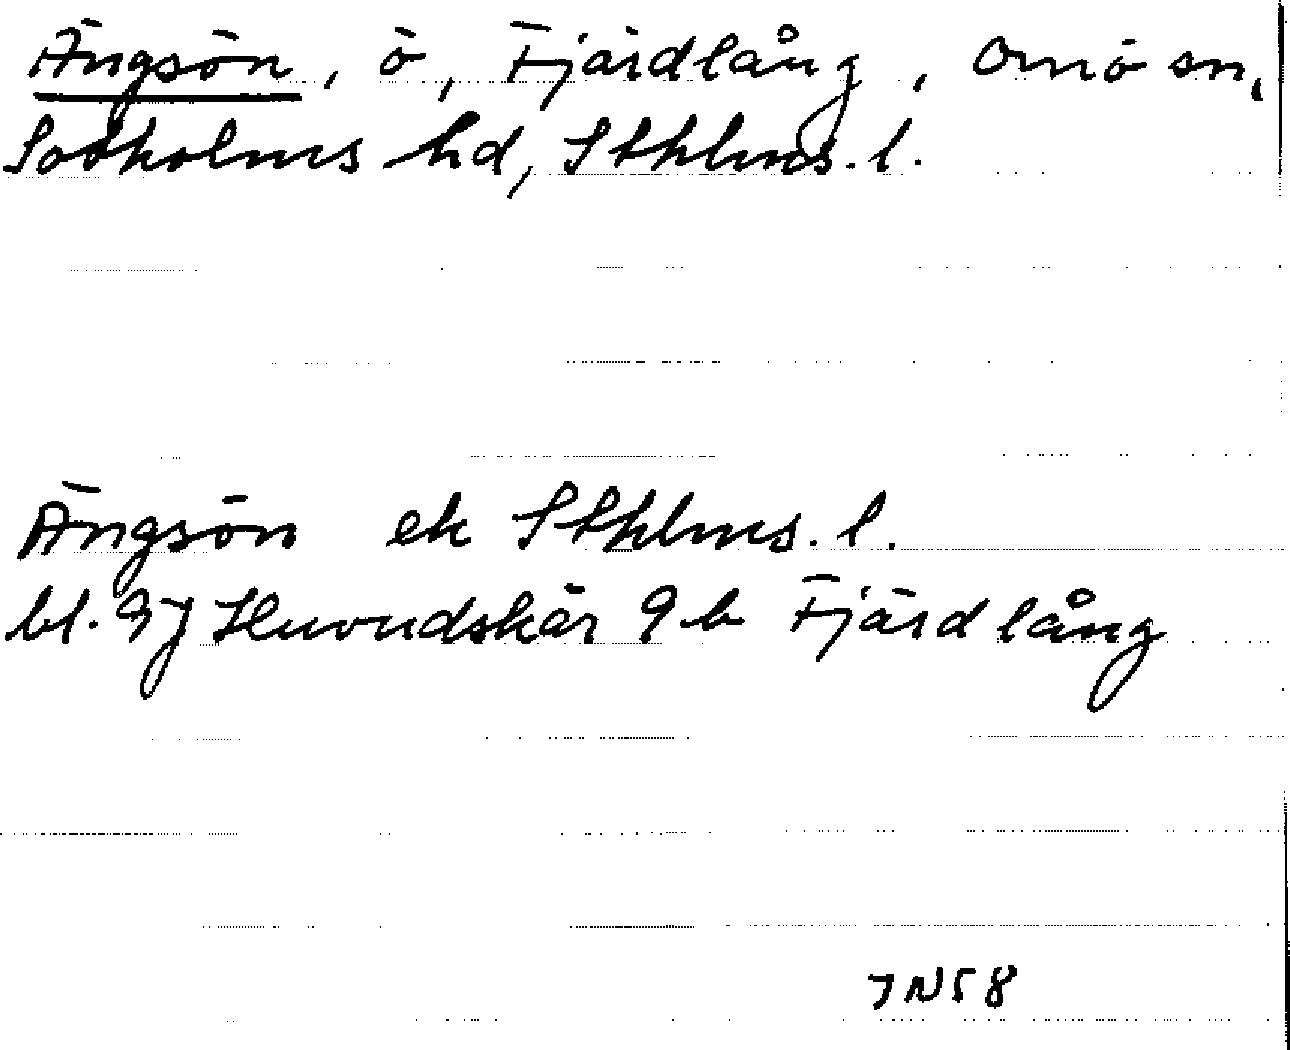 Ängsön, ö, Fjärdlång, Ornö sn,
Sotholms hd, Sthlms. l.
Ängsön ek Sthlms. l.
bl. 9J Huvudskär 9 b Fjärdlång
JN58